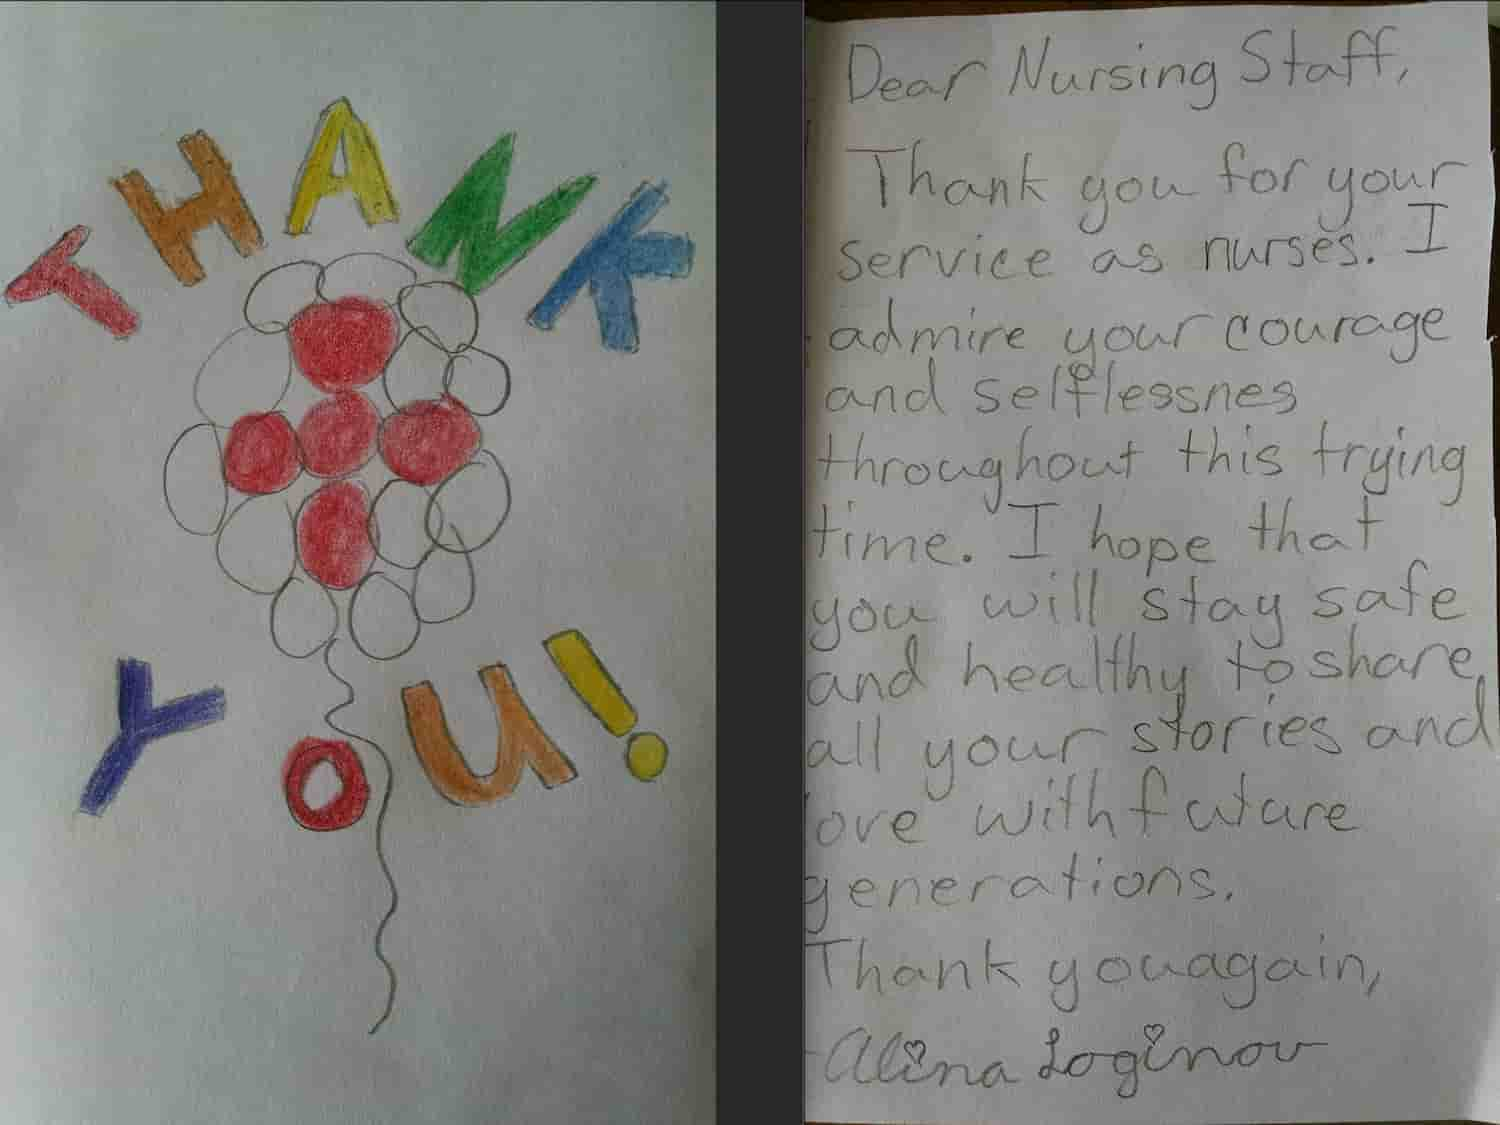 THANK
YOU!
Dear Nursing Staff,
Thank you for your
service as nurses. I
admire your courage
and selflessnes
throughout this trying
time. I hope that
you will stay safe
and healthy to share
all your stories and
love with future
generations.
Thank you again,
Alina Loginov